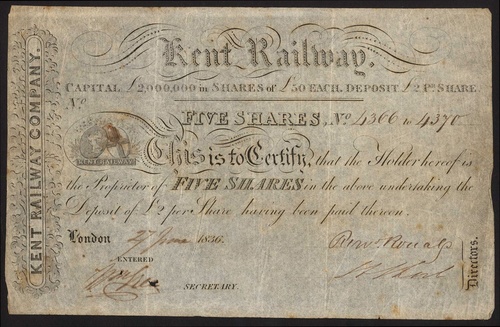 KENT RAILWAY COMPANY.
Kent Railway.
CAPITAL £2,000,000 in SHARES of £50 EACH DEPOSIT £2 Pr. SHARE
No.
FIVE SHARES, No. 4366 to 4370
KENT RAILWAY
This is to Certify, that the Holder hereof is
the Proprietor of FIVE SHARES in the above undertaking the
Deposit of £2 per Share having been paid thereon.
London 27 June 1836.
ENTERED
SECRETARY.
Directors.